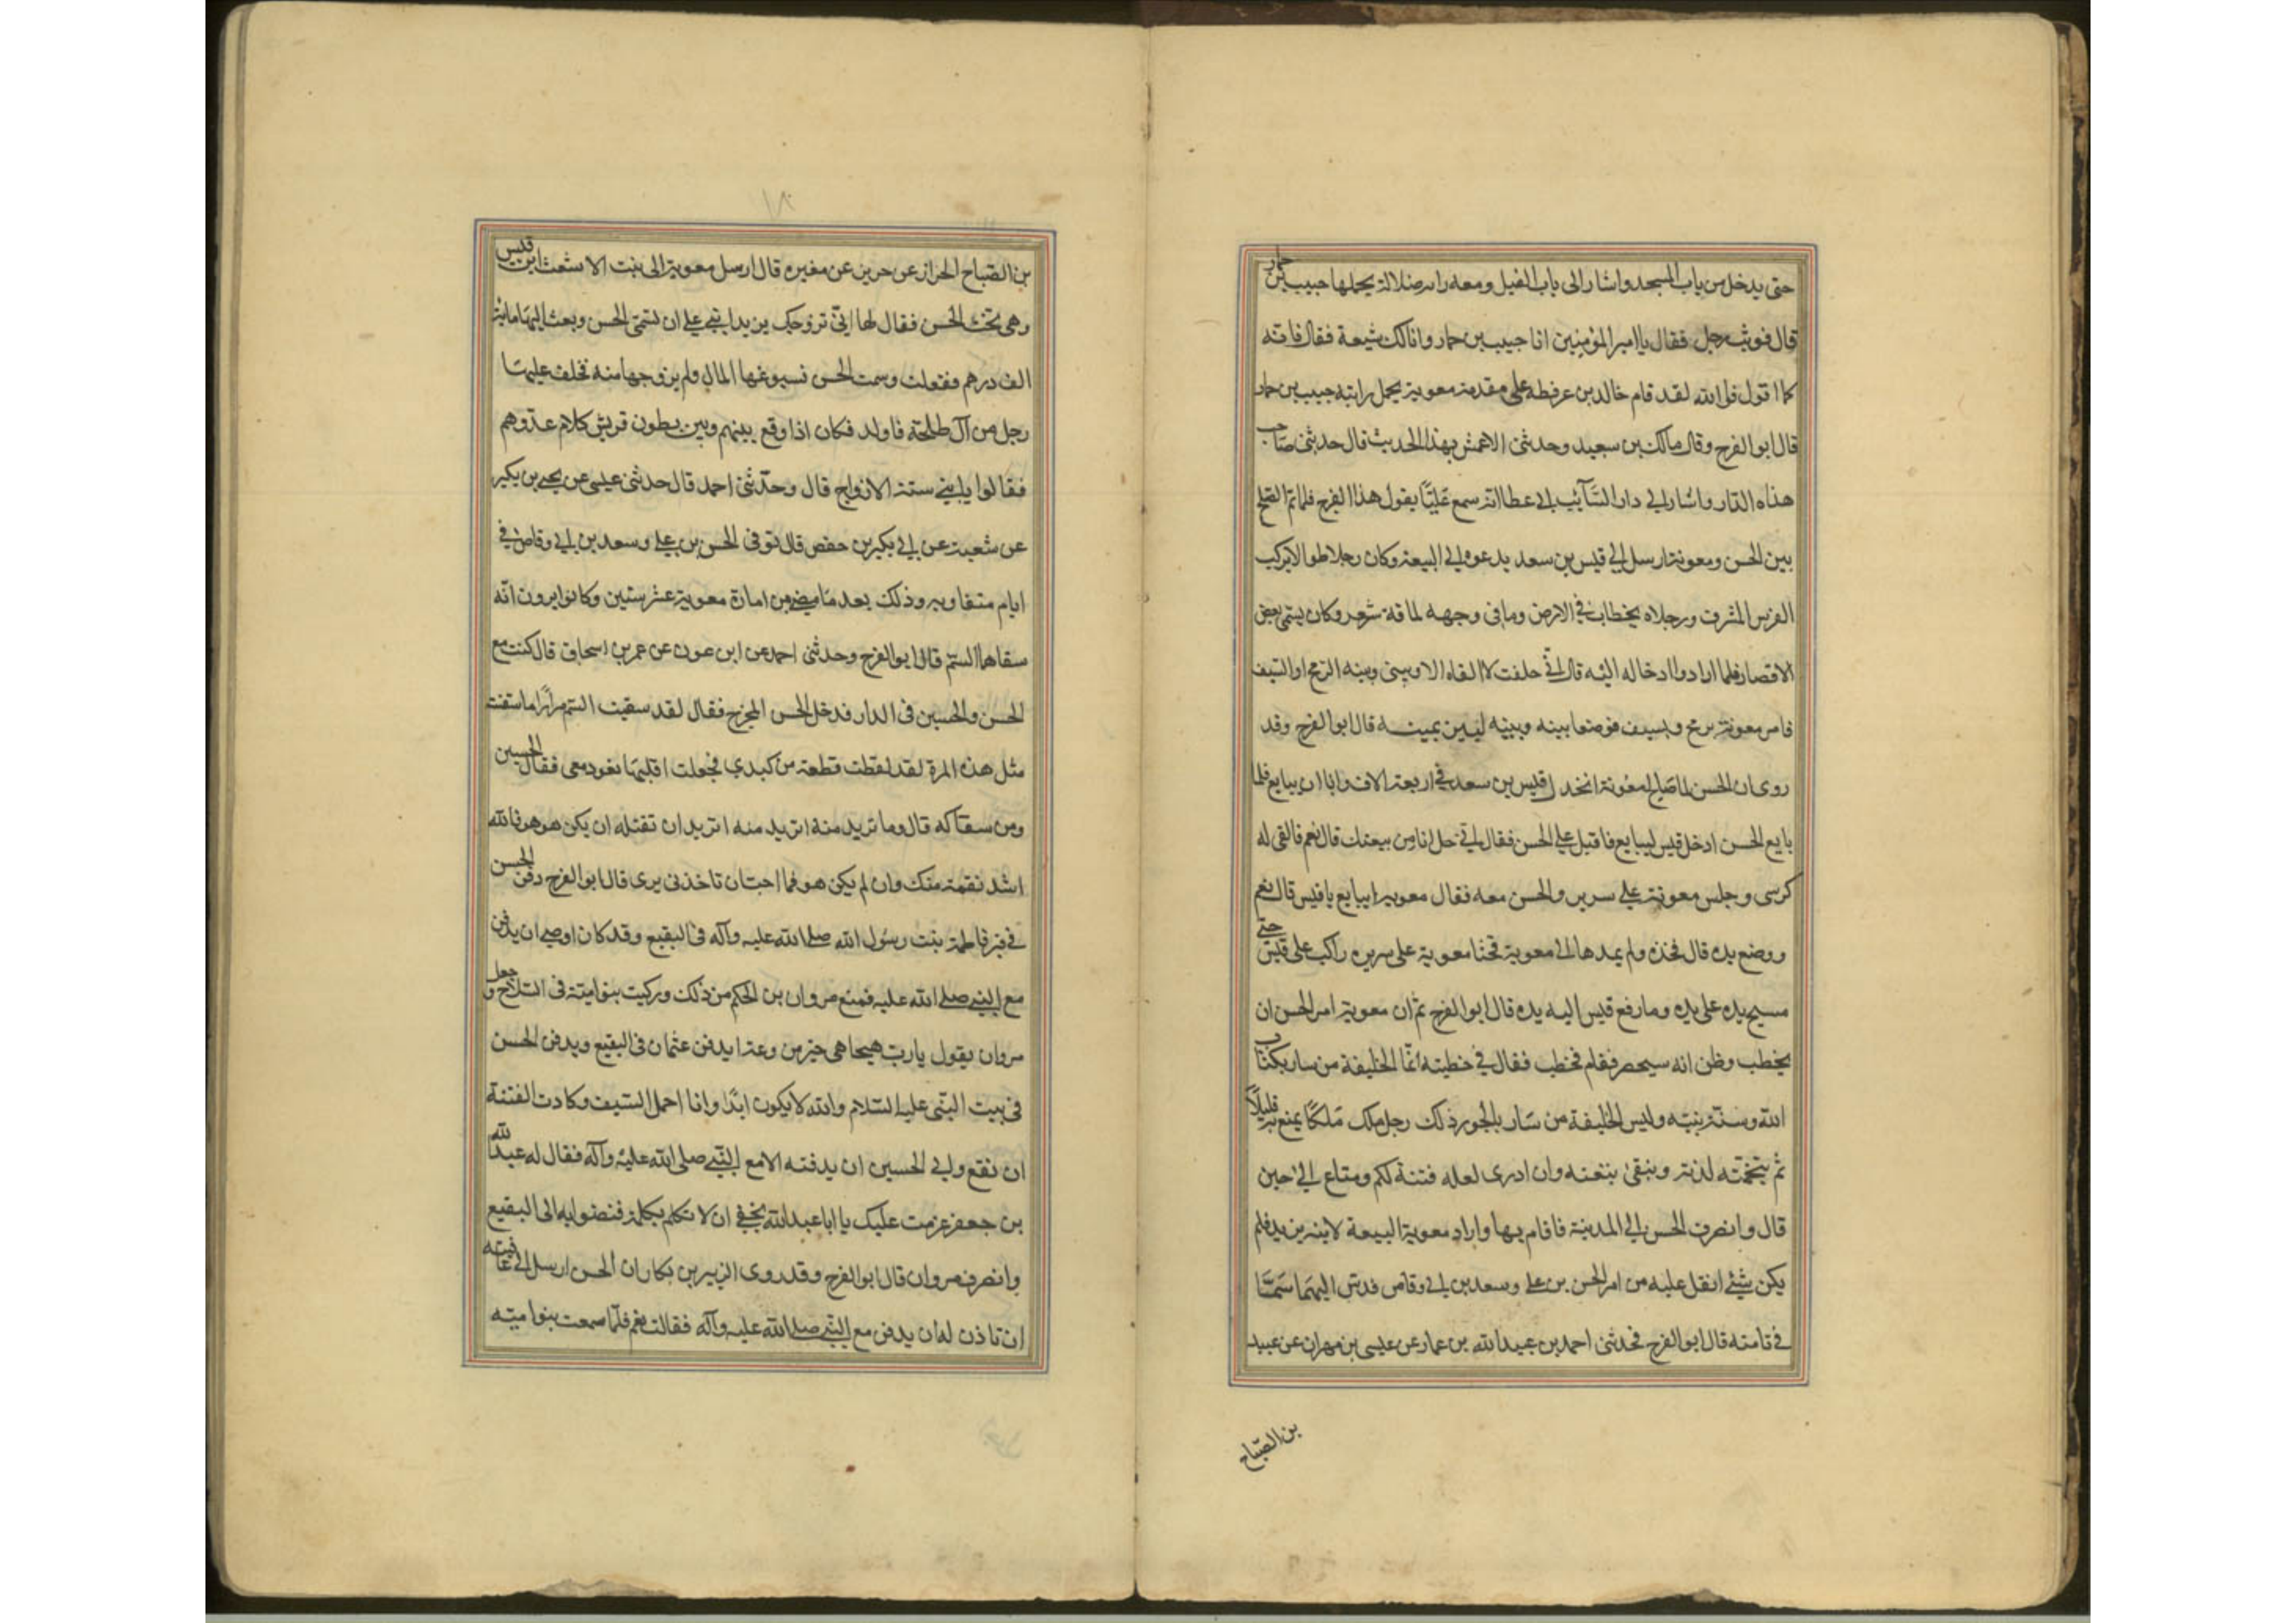 حتى يدخل من باب المسجد واشار الى باب الفيل ومعه راية ضلالة يحملها حبيب بن حمار
قال فوثب رجل فقال يا امير المؤمنين انا حبيب بن حمار وانا لك شيعة فقال فانه
كما اقول فوالله لقد قام خالد بن عرفطه على مقدمة معوية يحمل رايته حبيب بن حمار
قال ابو الفرج وقال مالك بن سعيد وحدثنى الاعمش بهذا الحديث قال حدثنى صاحب
هذاه الدار واشار الى دار السآئب ابى عطا انه سمع عليًا يقول هذا الفرج فلما تم الصلح
بين الحسن ومعوية ارسل الى قيس بن سعد يدعوه الى البيعة وكان رجلا طوالا يركب
الفرس المشرف ورجلاه يخطان فى الارض ومافى وجهه لماقة شعر وكان يسمى بعض
الاقصار فلما ارادوا ادخاله اليه قال انى حلفت لا القاه الا وبينى وبينه الرمح او السيف
فامر معوية برمح وبسيف فوضعا بينه وبينه ليبين يمينه قال ابو الفرج وقد
روى ان الحسن لما صالح لمعوية انخذل قيس بن سعد فى اربعة الاف وابا ان يبايع فلما
بايع الحسن ادخل قيس ليبايع فاقبل على الحسن فقال افى حل انا من بيعتك قال نعم فالقى له
كرسى وجلس معوية على سرير والحسن معه فقال معوية ابيايع يا قيس قال نعم
ووضع يده قال فخذه ولم يمدها الى معوية فحنا معوية على سريره راكب على قيس حتى
مسيح يده على يده وما رفع قيس اليه يده قال ابو الفرج ثم ان معوية امر الحسن ان
يخطب وظن انه سيحصر فقام فخطب فقال فى خطبته انما الخليفة من سار بكتاب
الله وسنة نبيه وليس الخليفة من سار بالجور ذلك رجل ملك مَلكًا يمنع به قليلاً
ثم يتخمته لذته وينقى بتعته وان ادرى لعله فتنة لكم ومتاع الى حين
قال وانصرف الحسن الى المدينة فاقام بها واراد معوية البيعة لابنه يزيد فلم
يكن شيئ اثقل عليه من امر الحسن بن على وسعد بن ابى وقاص فدس اليهما سمّا
فى تا منه قال ابو الفرج فحدثنى احمد بن عبيد الله بن عمار عن عيسى بن مهران عن عبيد
بن الصباح
بن الصباح الحراز عن حرير عن مغيره قال ارسل معوية الى بنت الاشعث ابن قيس
وهى تحت الحسن فقال لها انى تزوجك يزيد ابنى على ان تسمى الحسن وبعث اليها مايه
الف درهم فقبلت وسمت الحسن فسوغها المال ولم يزوجها منه فخلف عليها
رجل من آل طلحة فاولد فكان اذا وقع بينهم وبين بطون قريش كلام عدوهم
فقالوا يا بنى ستة الازواج قال وحدثنى احمد قال حدثنى عيسى عن يحيى بن بكير
عن شعبة عن ابى بكير بن حفص قال توفى الحسن بن على وسعد بن ابى وقاص فى
ايام متقاربه وذلك بعد ما مضى من امارة معوية عشر سنين وكانوا يرون انه
سقاهما السم قال ابو الفرج وحدثنى احمد عن ابن عون عن عمر بن اسحاق قال كنت مع
الحسن والحسين فى الدار فدخل الحسن المخرج فقال لقد سقيت السم مرارًا ما سقيت
مثل هذه المرة لقد لفظت قطعة من كبدى فجعلت اقلبها بعود معى فقال الحسين
ومن سقاكه قال وما تريد منه اتريد منه اتريد ان تقتله ان يكن هو هو فالله
اشد نقمة منك وان لم يكن هو فما احب ان تاخذنى برى قال ابو الفرج دفن الحسن
فى قبر فاطمة بنت رسول الله صلى الله عليه وآله فى البقيع وقد كان اوصى ان يدفن
مع النبى صلى الله عليه فمنع مروان بن الحكم من ذلك وركبت بنو امية فى السلاح وجعل
مروان يقول يا رب هيجا هى خير من وعدا يدفن عثمان فى البقيع ويدفن الحسن
فى بيت النبى عليه السلام والله لا يكون ابدًا وانا احمل السيف وكادت الفتنة
ان تقع وابى الحسين ان يدفنه الا مع النبى صلى الله عليه وآله فقال له عبد الله
بن جعفر عزمت عليك يا ابا عبد الله بحقى ان لا تكلم بكلمة فمضوا به الى البقيع
وانصرف مروان قال ابو الفرج وقد روى الزبير بن بكار ان الحسن ارسل الى عايشه
ان تاذن له ان يدفن مع النبى صلى الله عليه وآله فقالت نعم فلما سمعت بنو اميه